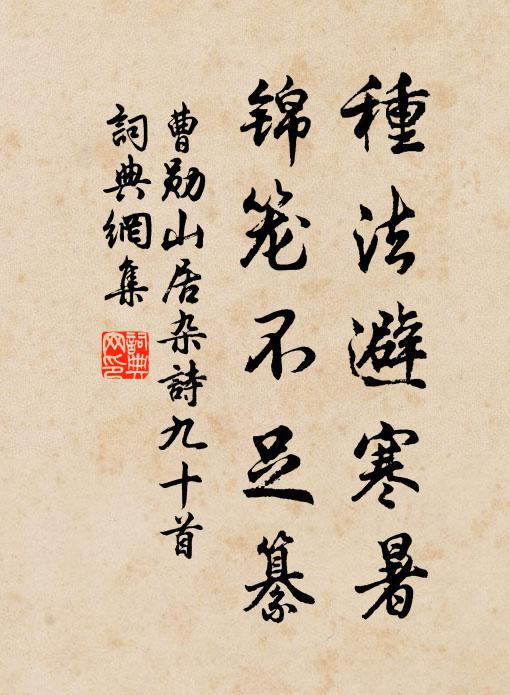 種法避寒暑
锦笼不足纂
曹勋山居杂詩九十首
詞典網集
詞典网印